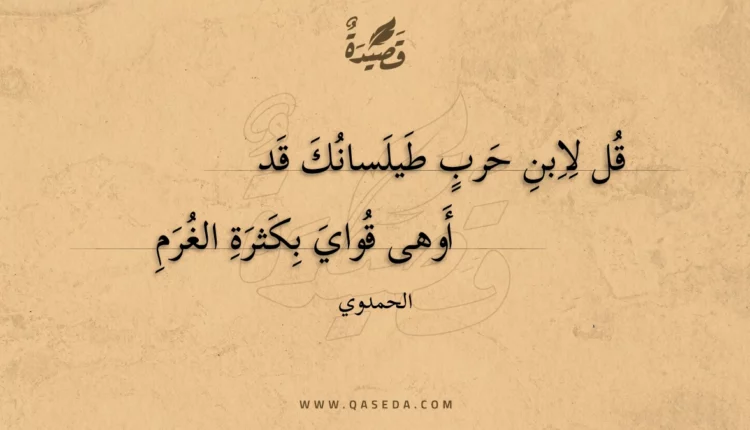 قَصِيدَةٌ
قُل لِاِبنِ حَربٍ طَيلَسانُكَ قَد
أَوهى قُوايَ بِكَثرَةِ الغُرَمِ
الحمدوي
WWW.QASEDA.COM